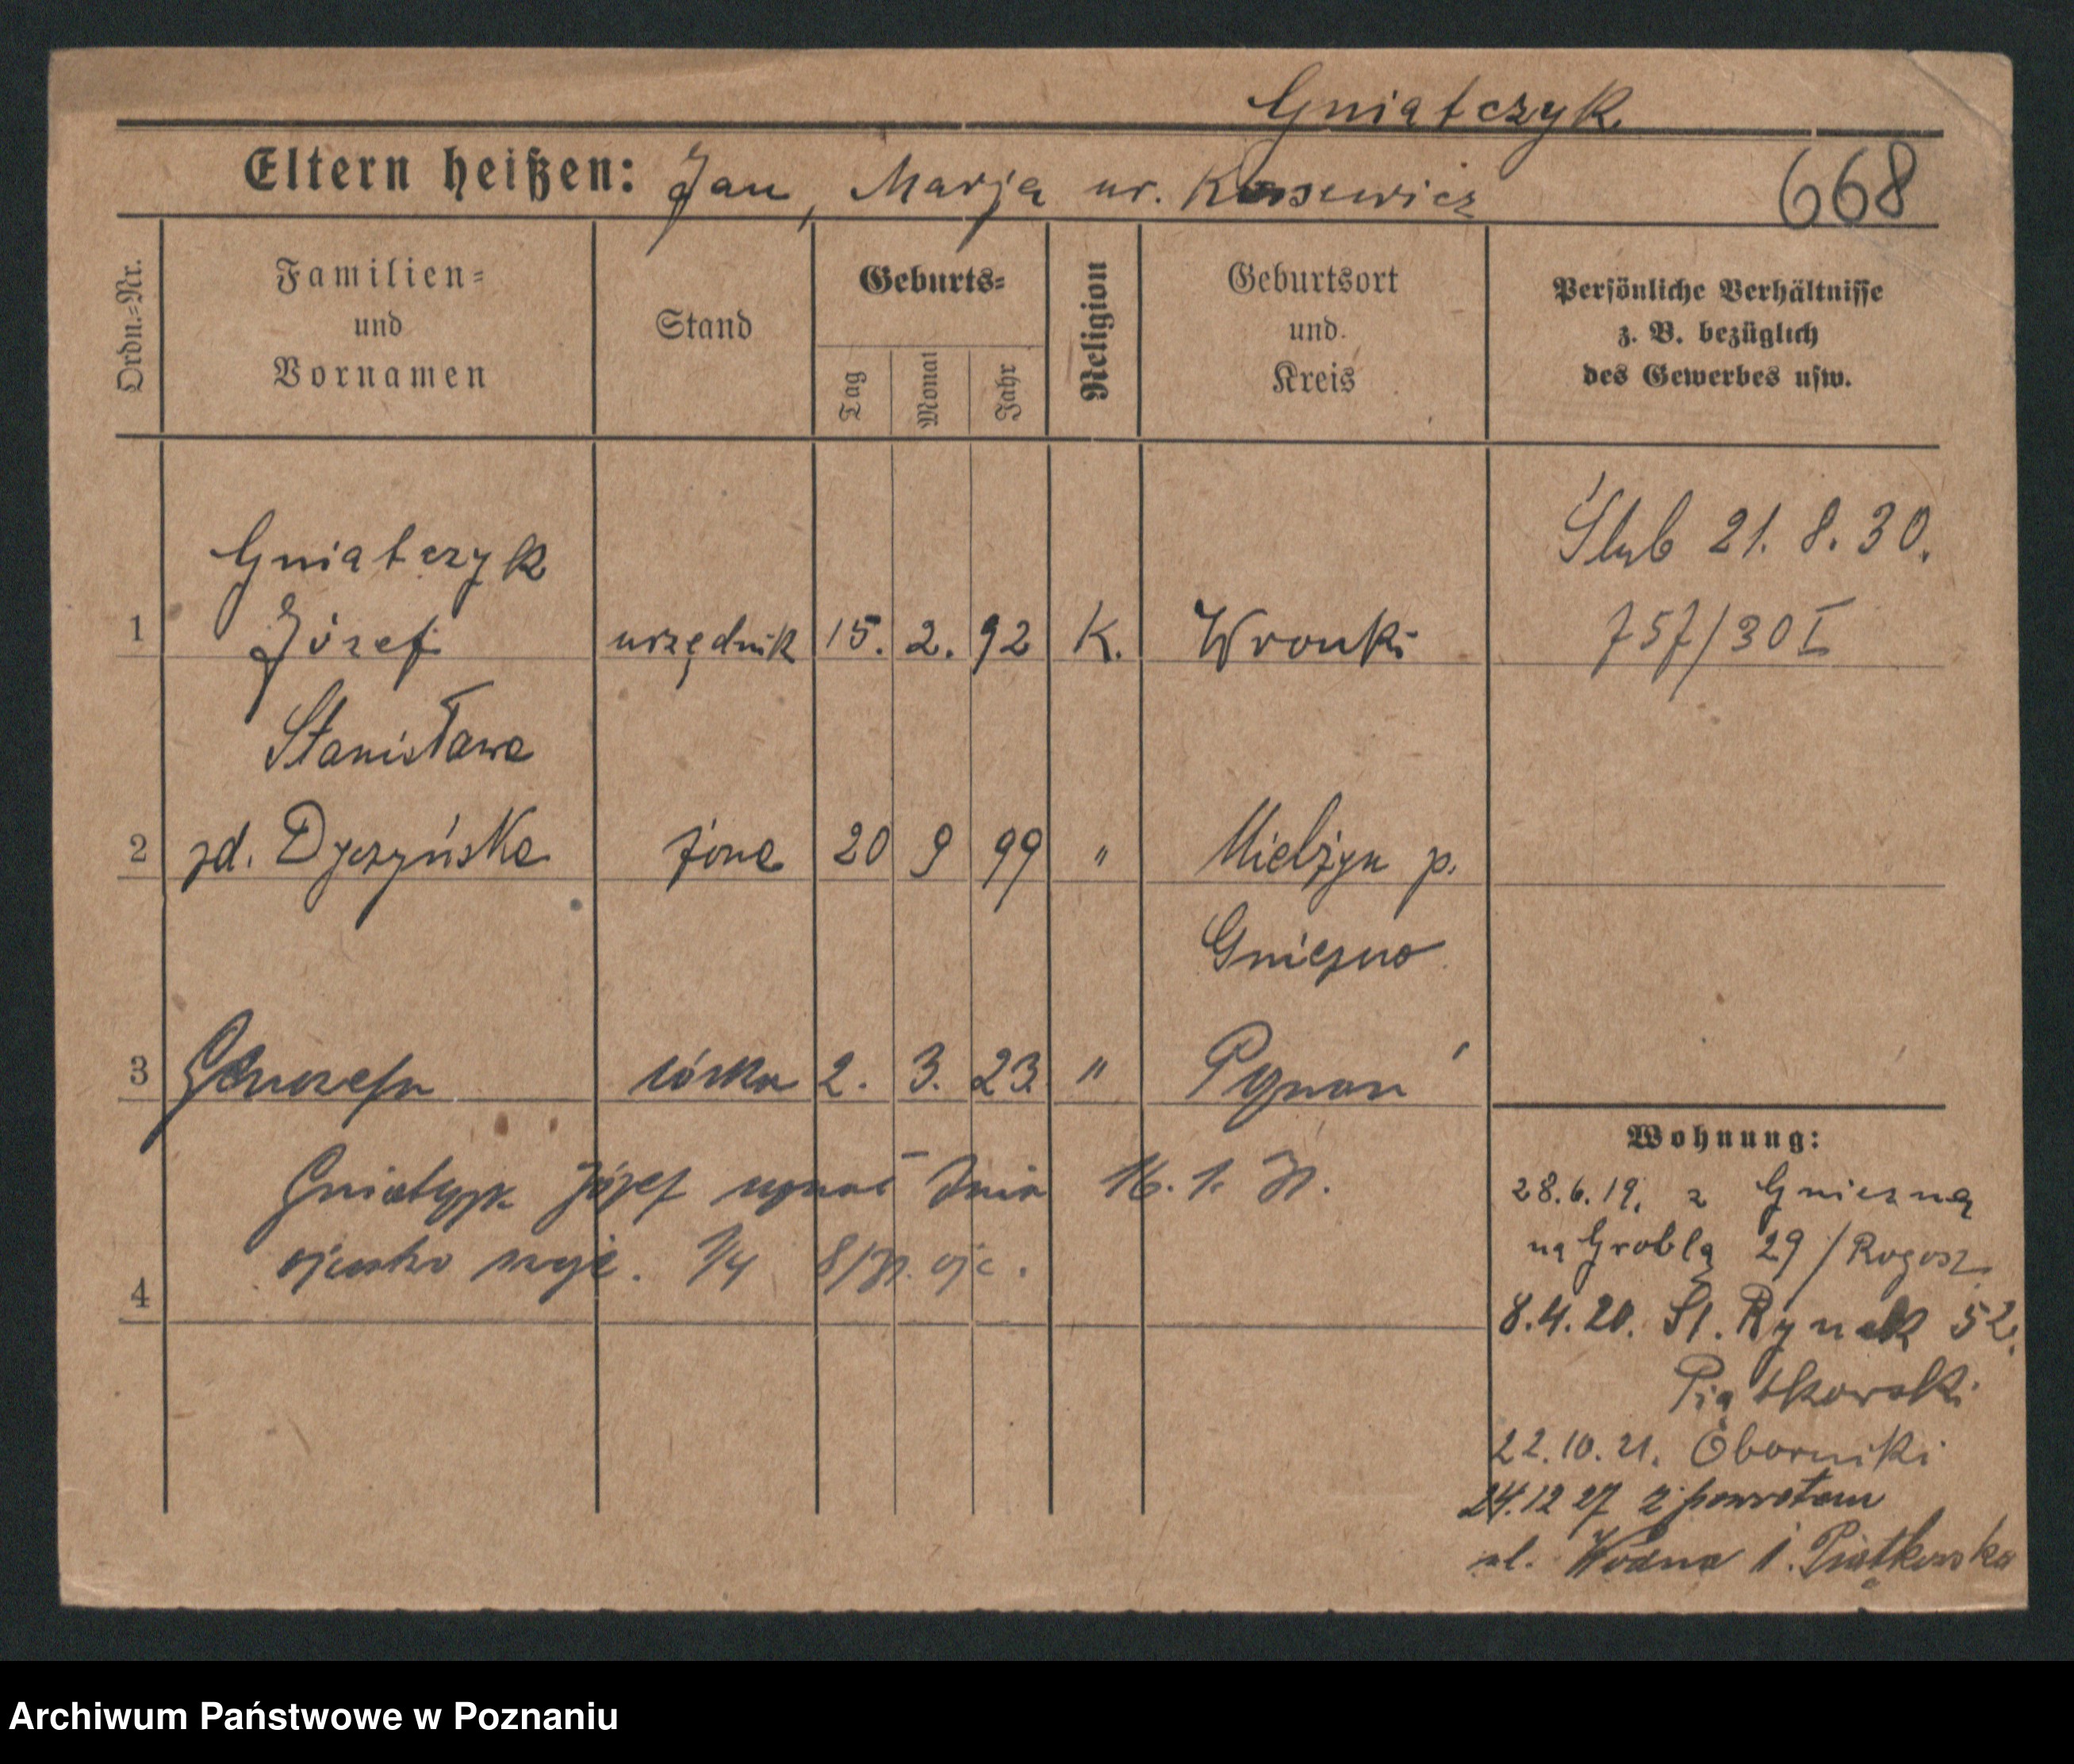 Gniatczyk
Eltern heißen: Jan, Marja ur. Kossewicz
668
Ordn.=Nr.
Familien=
und
Vornamen
Stand
Geburts=
Tag
Monat
Jahr
Religion
Geburtsort
und
Kreis
Persönliche Verhältnisse
z. B. bezüglich
des Gewerbes usw.
Ślub 21. 8. 30.
757/30 I
Gniatczyk
1 Józef urzędnik 15. 2. 92 K. Wronki
Stanisława
2 zd. Dyczyńska żona 20 9 99 " Mielżyn p.
Gniezno
3 córka 2. 3. 23. " Poznań
Gniatczyk Józef uznał dnia 16. 1. 31.
ojcostwo 8/31.
4
Wohnung:
28.6.19. z Gniezna
na Grobla 29 / Rogosz
8.4.20. St. Rynek 52.
Piątkowski
22.10.21. Oborniki
24.12 27 z powrotem
ul. Wodna Piątkowska
Archiwum Państwowe w Poznaniu